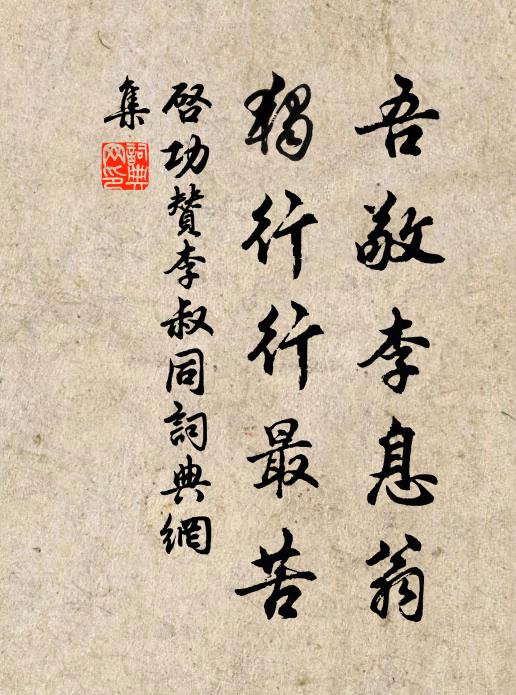 吾敬李息翁
獨行行最苦
啓功贊李叔同詞典網
集
詞典網印